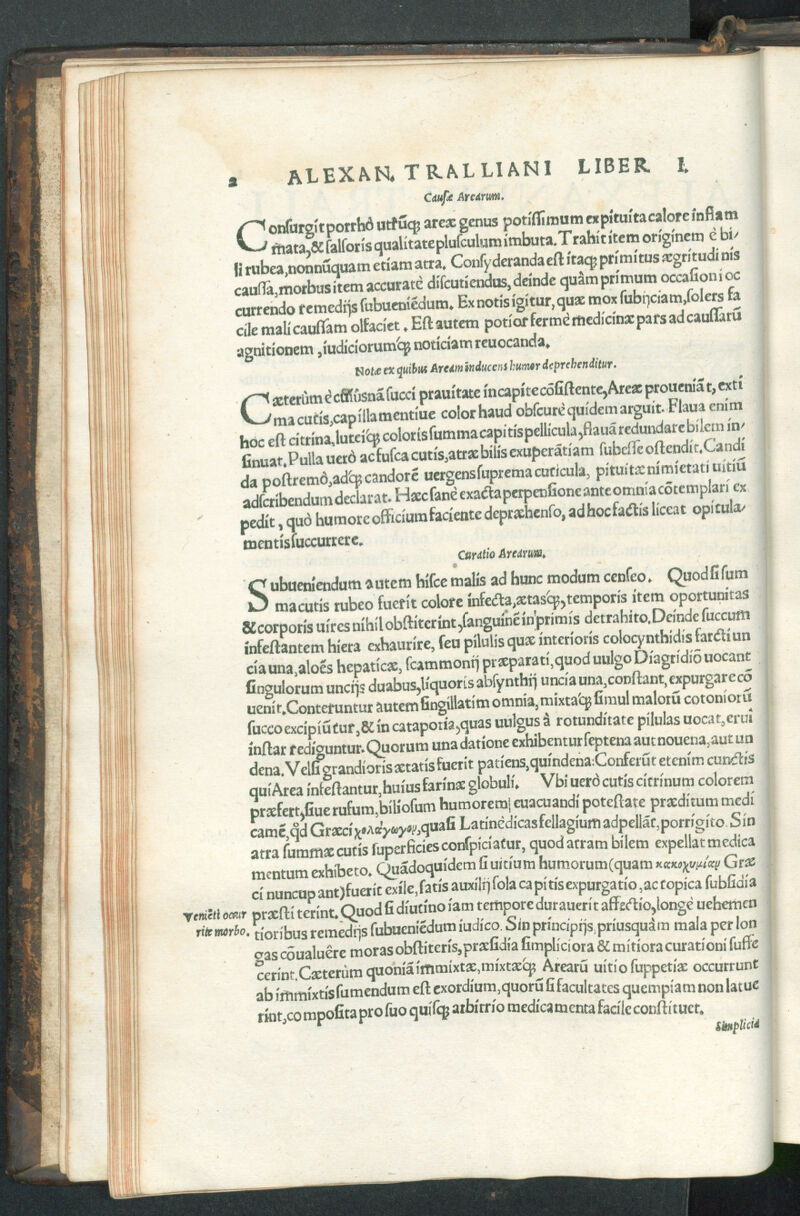 2 ALEXAN. TRALLIANI LIBER I.
Causæ Arearum.
Consurgit porrhò utrũq; areæ genus potissimum ex pituita calore inflam
mata, & salsoris qualitate plusculum imbuta. Trahit item originem è bi/
li rubea, nonnũquam etiam atra. Consyderanda est itaq; primitus ægritudinis
caussa, morbus item accuratè discutiendus, deinde quàm primum occasioni oc
currendo remedijs subueniẽdum. Ex notis igitur, quæ mox subijciam, solers fa
cile mali caussam olfaciet. Est autem potior fermè medicinæ pars ad caussarũ
agnitionem, iudiciorumq́; noticiam reuocanda.
Notæ ex quibus Aream inducens humor deprehenditur.
Cæterùm è succi prauitate in capite cõsistente, Areæ proueniãt, exti
ma cutis, capillamentiue color haud obscurè quidem arguit. Flaua enim
hoc est citrina, luteiq́; coloris summa capitis pellicula, flauã redundare bilem in/
sinuat. Pulla uerò ac fusca cutis, atræ bilis exuperãtiam subesse ostendit. Candi
da postremò, adq́; candorẽ uergens suprema cuticula, pituitæ nimietati uitiũ
adscribendum declarat. Hæc sanè exacta perpensione ante omnia cõtemplari ex
pedit, quò humore officium faciente depræhenso, ad hoc factis liceat opitula/
mentis succurrere.
Curatio Arearum.
Subueniendum autem hisce malis ad hunc modum censeo. Quod si sum
ma cutis rubeo fuerit colore infecta, ætasq́;, temporis item oportunitas
& corporis uires nihil obstiterint, sanguinẽ in primis detrahito. Deinde succum
infestantem hiera exhaurire, seu pilulis quæ interioris colocynthidis farcti un
cia una, aloës hepaticæ, scammonij præparati, quod uulgo Diagridiõ uocant
singulorum uncijs duabus, liquoris absynthij uncia una, constant, expurgare cõ
uenit. Conteruntur autem singillatim omnia, mixtaq́; simul malorũ cotoniorũ
succo excipiũtur, & in catapotia, quas uulgus à rotunditate pilulas uocat, erui
instar rediguntur. Quorum una datione exhibentur septena aut nouena, aut un
dena. Vel si grandioris ætatis fuerit patiens, quindena: Conferũt etenim cunctis
qui Area infestantur, huius farinæ globuli. Vbi uerò cutis citrinum colorem
præfert, siue rufum, biliosum humorem euacuandi potestate præditum medi
camẽ, qđ Græci χολάγωγον, quasi Latinè dicas fellagium adpellãt, porrigito. Sin
atra summæ cutis superficies conspiciatur, quod atram bilem expellat medica
mentum exhibeto. Quãdoquidem si uitium humorum (quam κακοχυμίαν Græ
ci nuncupant) fuerit exile, satis auxilij sola capitis expurgatio, ac topica subsidia
præstiterint. Quod si diutino iam tempore durauerit affectio, longè uehemen
tioribus remedijs subueniẽdum iudico. Sin principijs, priusquàm mala per lon
gas cõualuêre moras obstiteris, præsidia simpliciora & mitiora curationi suffe
cerint. Cæterùm quoniã immixtæ, mixtæq́; Arearũ uitio suppetiæ occurrunt
ab immixtis sumendum est exordium, quorũ si facultates quempiam non latue
rint, composita pro suo quisq; arbitrio medicamenta facile constituet.
Simplicia
Veniẽti occur
rite morbo.